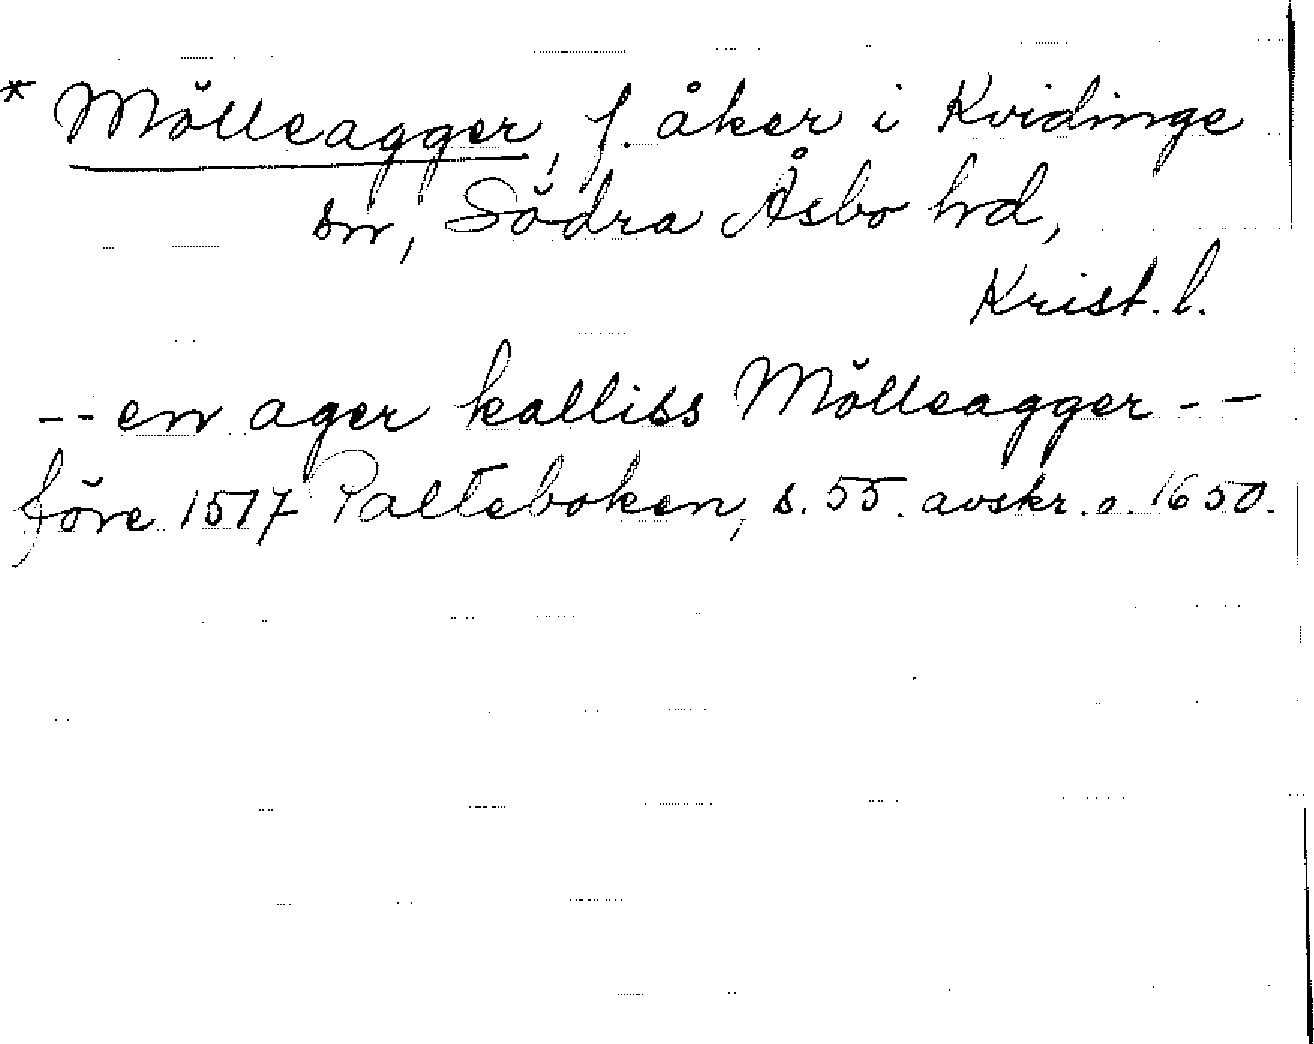 * Mölleagger, f. åker i Kvidinge
sn, Södra Åsbo hd,
Krist. l.
-- en ager kalliss Mölleagger --
före 1517 Palteboken, s. 55. avskr. o. 1650.